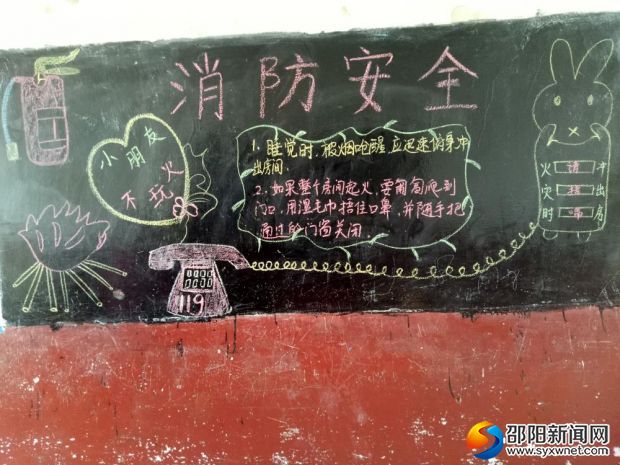 消防安全
小朋友
不玩火
1、睡觉时,被烟呛醒,应迅速俯身冲
出房间。
2、如果整个房间起火,要匍匐爬到
门口,用湿毛巾捂住口鼻,并随手把
门窗关闭。
119
火 请 冲
灾 出
时 房
邵阳新闻网
www.syxwnet.com